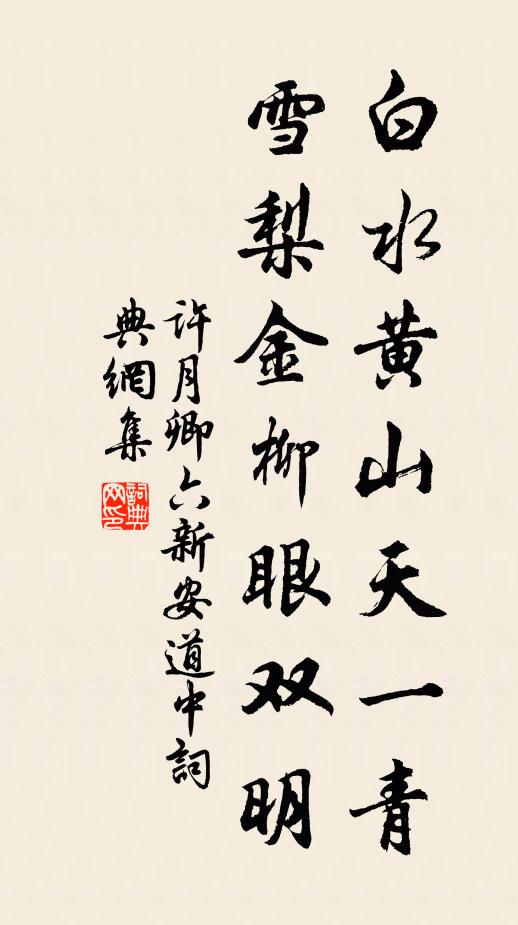 白水黄山天一青
雪梨金柳眼双明
许月卿六新安道中詞
典網集
詞典网印